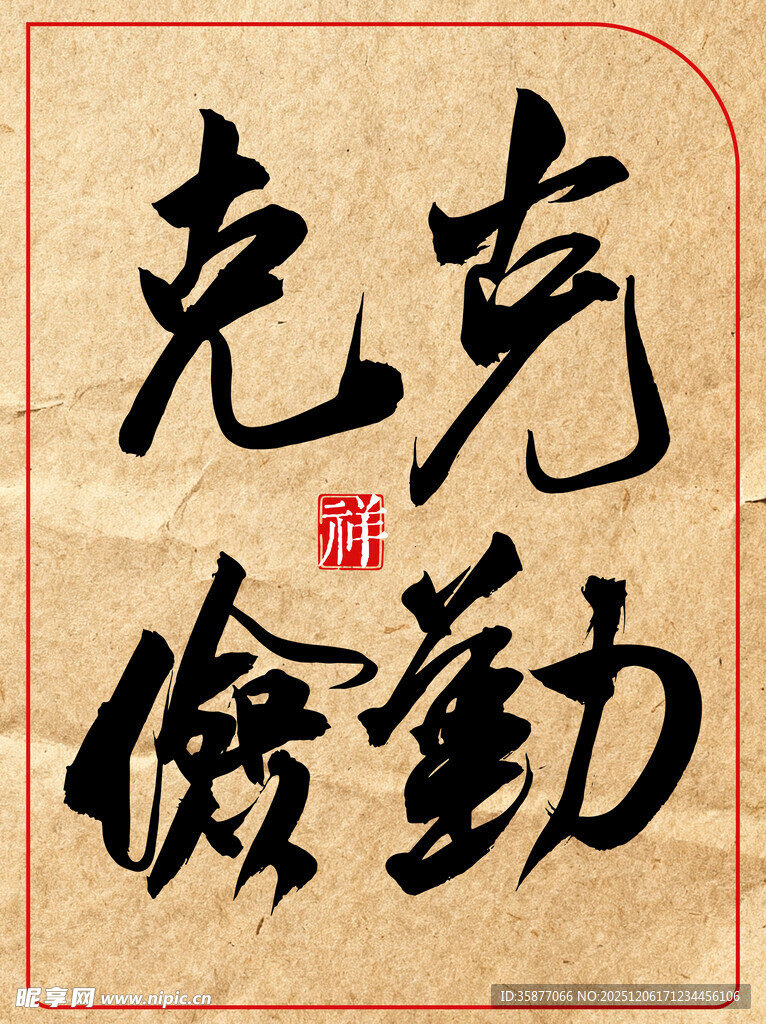 克勤
克儉
祥
昵享网 www.nipic.cn
ID:35877066 NO:20251206171234456106